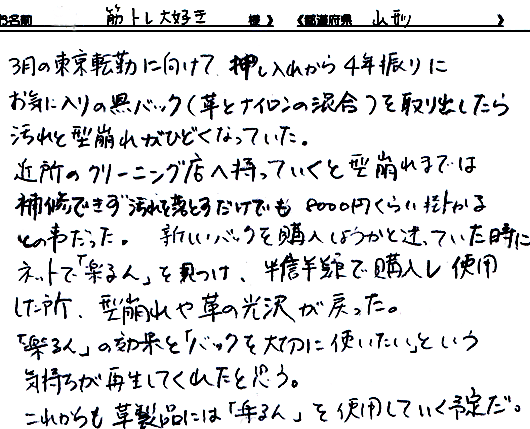 お名前 筋トレ大好き 様》 《都道府県 山形 》
3月の東京転勤に向けて 押し入れから4年振りに
お気に入りの黒バック(革とナイロンの混合)を取り出したら
汚れと型崩れがひどくなっていた。
近所のクリーニング店へ持っていくと型崩れまでは
補修できず汚れを落とすだけでも 8000円くらい掛かる
との事だった。 新しいバックを購入しようかと迷っていた時に
ネットで「楽るん」を見つけ、半信半疑で購入し使用
した所、型崩れや革の光沢が戻った。
「楽るん」の効果と「バックを大切に使いたい」という
気持ちが再生してくれたと思う。
これからも革製品には「楽るん」を使用していく予定だ。